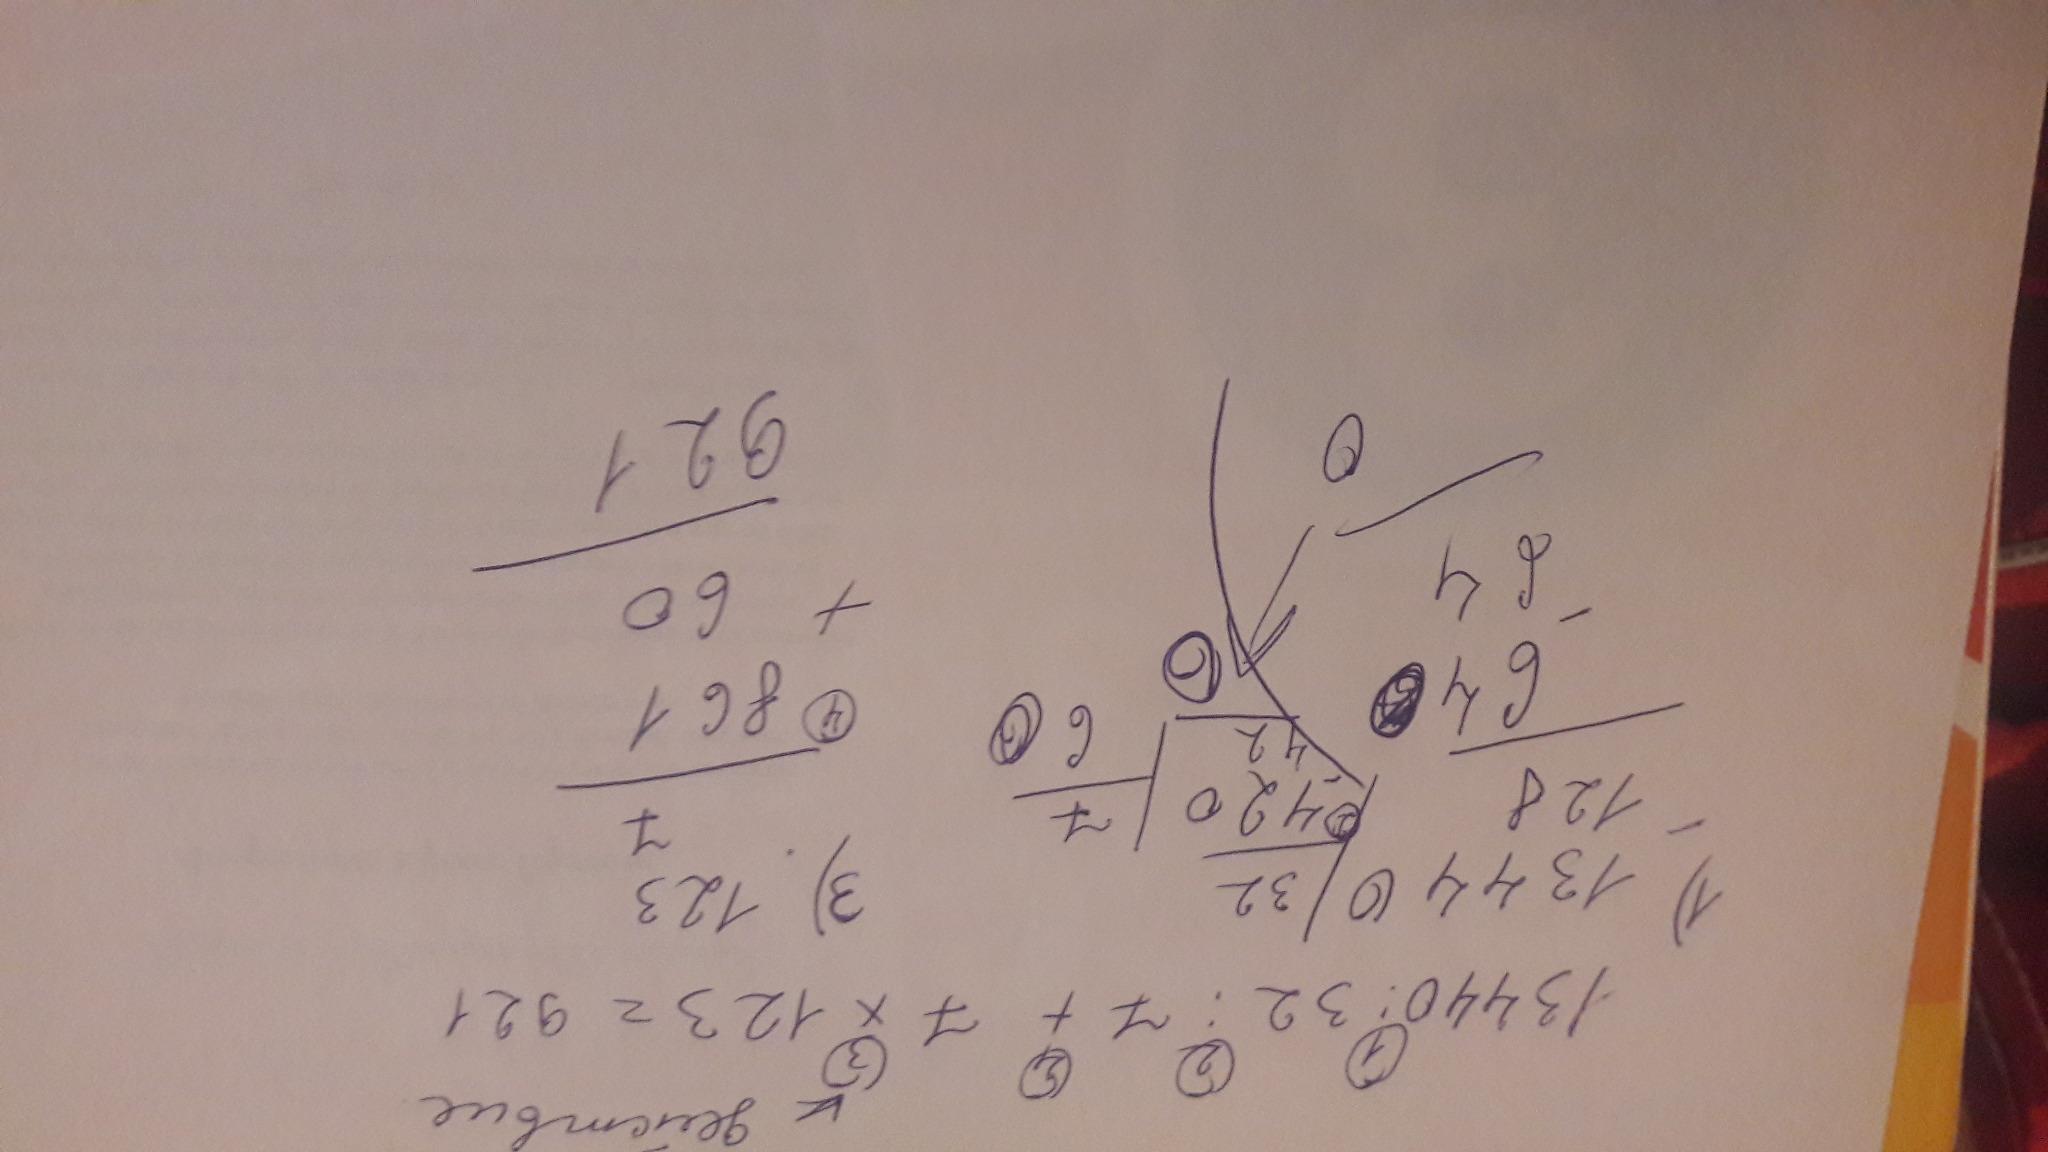 ← действие
① ② ④ ③
13440:32:7+7×123=921
1) 13440|32
- 128 ②420|7
64 - 42 60
- 64 0
0
3) 123
7
④ 861
+ 60
921